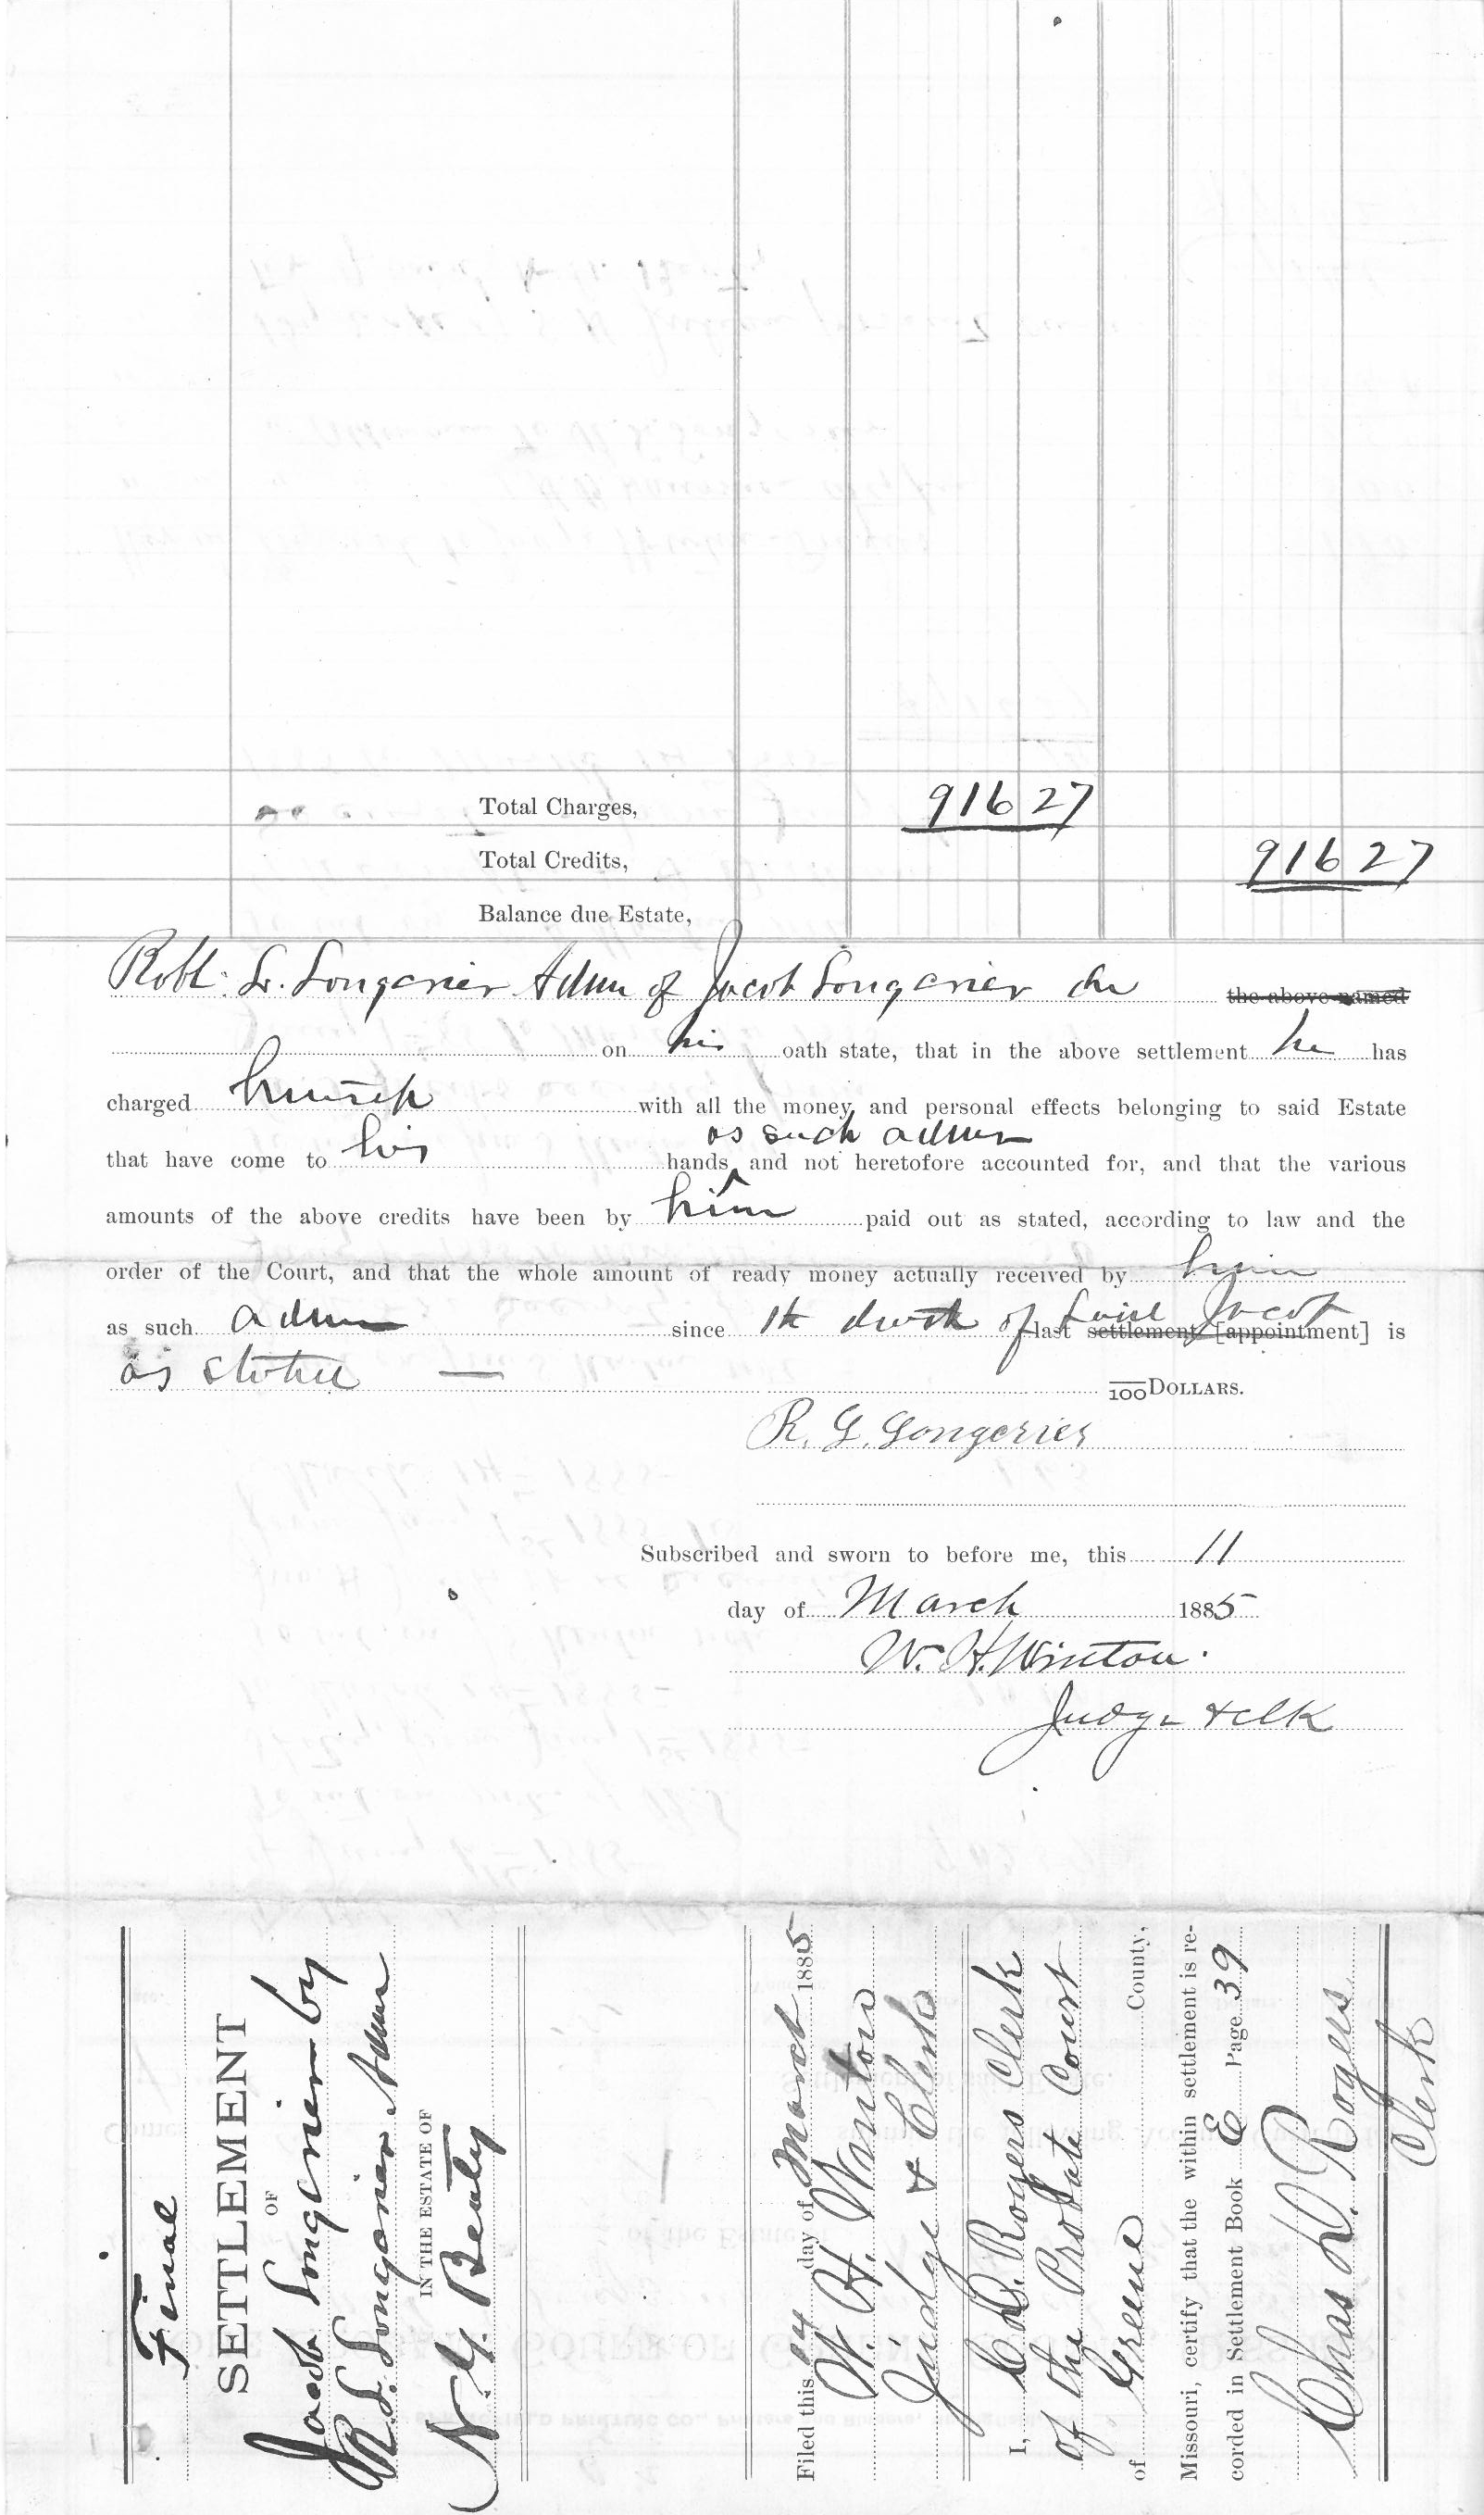 Total Charges, 916 27
Total Credits, 916 27
Balance due Estate,
Robt. L. Longcrier Admr of Jacob Longcrier dec the above named
on his oath state, that in the above settlement he has
charged himself with all the money and personal effects belonging to said Estate
as such admr
that have come to his hands and not heretofore accounted for, and that the various
amounts of the above credits have been by him paid out as stated, according to law and the
order of the Court, and that the whole amount of ready money actually received by him
as such admr since the death of said Jacob last settlement [appointment] is
as stated — /100 DOLLARS.
R. L. Longcrier
Subscribed and sworn to before me, this 11
day of March 1885
W. H. Winton.
Judge & clk
Final
SETTLEMENT
OF
Jacob Longcrier by
R. L. Longcrier Admr
IN THE ESTATE OF
N. Y. Beaty
Filed this 14 day of March 1885
W. H. Winton
Judge & Clerk
I, C. D. Rogers Clerk
of the Probate Court
of Greene County,
Missouri, certify that the within settlement is re-
corded in Settlement Book E Page 39
Chas D. Rogers
Clerk